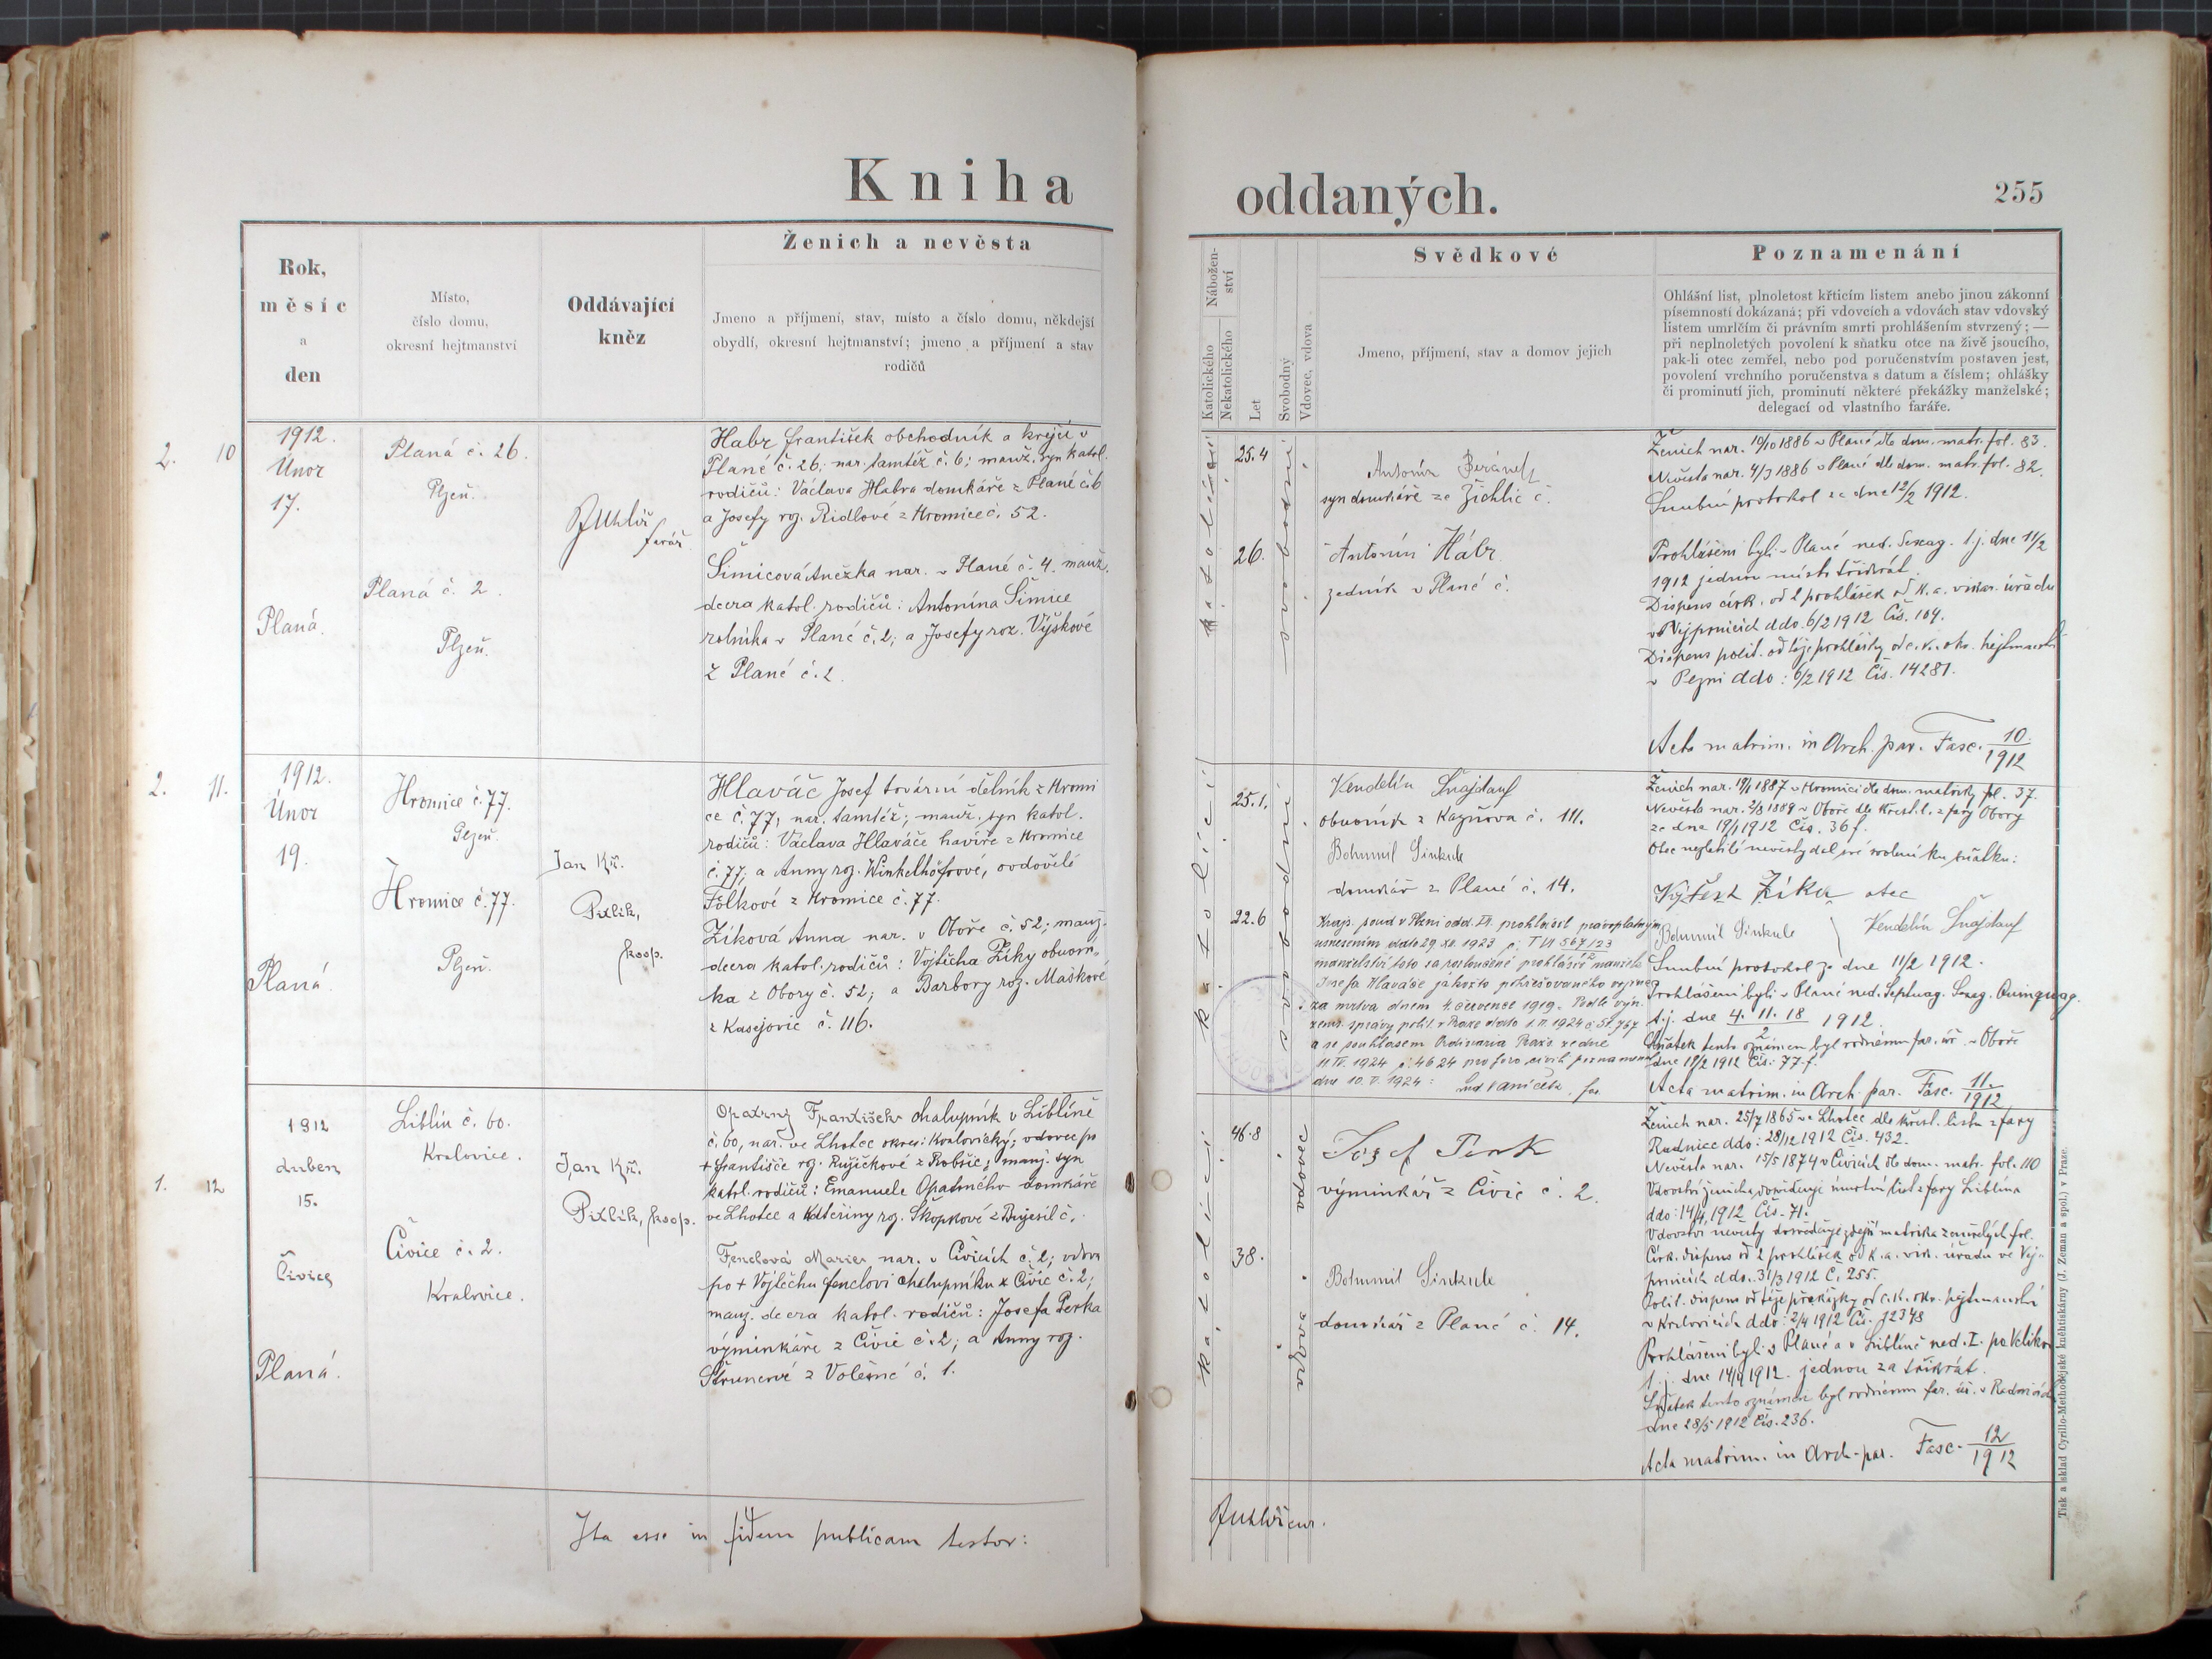 Kniha oddaných.
255
Rok,
měsíc
a
den
Místo,
číslo domu,
okresní hejtmanství
Oddávající
kněz
Ženich a nevěsta
Jmeno a příjmení, stav, místo a číslo domu, někdejší
obydlí, okresní hejtmanství; jmeno a příjmení a stav
rodičů
Nábožen-
ství
Katolického
Nekatolického
Let
Svobodný
Vdovec, vdova
Svědkové
Jmeno, příjmení, stav a domov jejich
Poznamenání
Ohlášní list, plnoletost křticím listem anebo jinou zákonní
písemností dokázaná; při vdovcích a vdovách stav vdovský
listem umrlčím či právním smrti prohlášením stvrzený; —
při neplnoletých povolení k sňatku otce na živě jsoucího,
pak-li otec zemřel, nebo pod poručenstvím postaven jest,
povolení vrchního poručenstva s datum a číslem; ohlášky
či prominutí jich, prominutí některé překážky manželské;
delegací od vlastního faráře.
2. 10
1912.
Únor
17.
Planá.
Planá č. 26.
Plzeň.
Planá č. 2.
Plzeň.
farář
Habr František obchodník a krejčí v
Plané č. 26; nar. tamtéž č. 6; manž. syn katol.
rodičů: Václava Habra domkáře z Plané č. 6
a Josefy roz. Ridlové z Hromice č. 52.
Šimicová Anežka nar. v Plané č. 4. manž.
dcera katol. rodičů: Antonína Šimice
rolníka v Plané č. 2; a Josefy roz. Výškové
z Plané č. 2.
katolické
25.4
26.
svobodní
Antonín Beránek
syn domkáře ze Žichlic č.
Antonín Hábr
zedník v Plané č.
Ženich nar. 10/10 1886 v Plané dle dom. matr. fol. 83.
Nevěsta nar. 4/3 1886 v Plané dle dom. matr. fol. 82.
Snubní protokol ze dne 12/2 1912.
Prohlášeni byli v Plané ned. Sexag. t. j. dne 11/2
1912 jednou místo třikrát.
Dispens círk. od 2 prohlášek od k. a. vikar. úřadu
ve Vejprnicích ddo. 6/2 1912 Čís. 104.
Dispens polit. od téže prohlášky od c. k. okr. hejtmanství
v Plzni ddo: 6/2 1912 Čís. 14281.
Acta matrim. in Arch. par. Fasc. 10/1912
2. 11.
1912.
Únor
19.
Planá
Hromice č. 77.
Plzeň.
Hromice č. 77.
Plzeň.
Jan Kř.
Pixlík,
koop.
Hlaváč Josef tovární dělník z Hromi
ce č. 77, nar. tamtéž; manž. syn katol.
rodičů: Václava Hlaváče havíře z Hromice
č. 77; a Anny roz. Winkelhöfrové, ovdovělé
Fölkové z Hromice č. 77.
Zíková Anna nar. v Oboře č. 52; manž.
dcera katol. rodičů: Vojtěcha Zíky obuvní-
ka z Obory č. 52; a Barbory roz. Maškové
z Kasejovic č. 116.
katolíci
25.1.
22.6
svobodní
Vendelín Šnajdauf
obuvník z Kaznova č. 111.
Bohumil Sinkule
domkář z Plané č. 14.
Krajs. soud v Plzni odd. IV. prohlásil pravoplatným
usnesením ddto 29. XI. 1923 T VI 567/23
manželství toto za rozloučené
Josefa Hlaváče jakožto pohřešovaného vojína
za mrtva dnem 4. července 1919. Podle výn.
zems. správy polit. v Praze ddto 1. II. 1924 č. 51.767
a se souhlasem Ordinaria Praž. ze dne
11. IV. 1924 č. 4624 pro foro civili poznamenal
dne 10. V. 1924:
Ženich nar. 19/1 1887 v Hromici dle dom. matriky fol. 37.
Nevěsta nar. 2/8 1889 v Oboře dle křest. l. z fary Obory
ze dne 19/1 1912 Čís. 36 f.
Otec nezletilé nevěsty dal své svolení ku sňatku:
Zíka otec
Bohumil Sinkule Vendelín Šnajdauf
Snubní protokol ze dne 11/2 1912.
Prohlášeni byli v Plané ned. Septuag. Sexag. Quinquag.
t. j. dne 4. 11. 18/2 1912.
Sňatek tento oznámen byl rodnému far. úř. v Oboře
dne 19/2 1912 Čís. 77 f.
Acta matrim. in Arch. par. Fasc. 11./1912
1. 12
1912
duben
15.
Čivice
Planá.
Liblín č. 60.
Kralovice.
Čivice č. 2.
Kralovice.
Jan Kř.
Pixlík, koop.
Opatrný František chalupník v Liblíně
č. 60, nar. ve Lhotce okres: Kralovický; vdovec po
+ Františce roz. Ružičkové z Robčic; manž. syn
katol. rodičů: Emanuele Opatrného domkáře
ve Lhotce a Kateřiny roz. Škopkové z Bujesil č.
Fenclová Marie nar. v Čivicích č. 2; vdova
po + Vojtěchu Fenclovi chalupníku z Čivic č. 2;
manž. dcera katol. rodičů: Josefa Perka
výminkáře z Čivic č. 2; a Anny roz.
Štrunerové z Volešné č. 1.
katolíci
46.8
38.
vdovec
vdova
Josef Perk
výminkář z Čivic č. 2.
Bohumil Sinkule
domkář z Plané č. 14.
Ženich nar. 25/7 1865 ve Lhotce dle křest. listu z fary
Radnice ddo: 28/12 1912 Čís. 432.
Nevěsta nar. 15/5 1874 v Čivicích dle dom. matr. fol. 110
Vdovství ženicha dosvědčuje úmrtní list z fary Liblína
ddo: 14/4 1912 Čís. 71.
Vdovství nevěsty dosvědčuje zdejší matrika zemřelých fol.
Círk. dispens od 2 prohlášek od k. a. vik. úřadu ve Vej-
prnicích ddo. 31/3 1912 Č. 255.
Polit. dispens od téže překážky od c. k. okr. hejtmanství
v Kralovicích ddo: 2/4 1912 Čís. 12348
Prohlášeni byli v Plané a v Liblíně ned. I. po Velikon.
t. j. dne 14/4 1912. jednou za třikrát.
Sňatek tento oznámen byl rodnému far. úř. v Radnicích
dne 28/5 1912 Čís. 236.
Acta matrim. in Arch. par. Fasc. 12/1912
Ita esse in fidem publicam testor:
Tisk a sklad Cyrillo-Methodějské knihtiskárny (J. Zeman a spol.) v Praze.